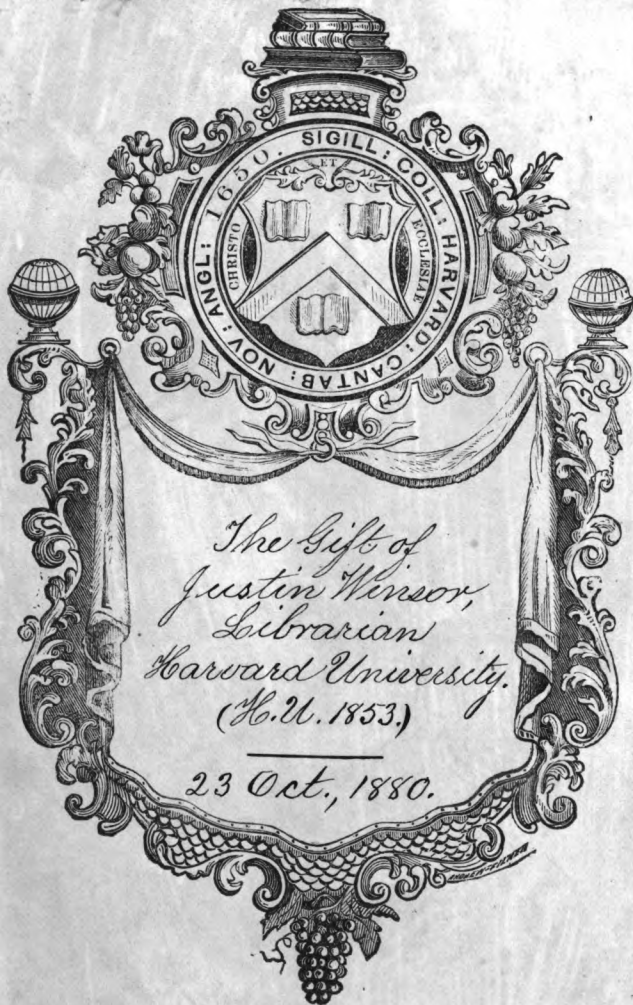 SIGILL: COLL: HARVARD: CANTAB: NOV: ANGL: 1650.
CHRISTO ET ECCLESIAE
The Gift of
Justin Winsor,
Librarian
Harvard University.
(H.U. 1853.)
23 Oct., 1880.